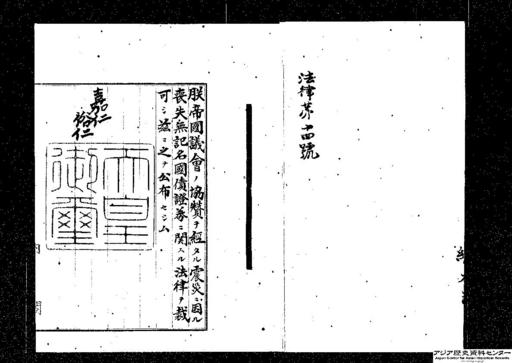 法律第十四號
朕帝國議會ノ協贊ヲ經タル震災ニ因ル
喪失無記名國債證券ニ關スル法律ヲ裁
可シ茲ニ之ヲ公布セシム
嘉仁
裕仁
天皇
御璽
内閣
アジア歴史資料センター
Japan Center for Asian Historical Records